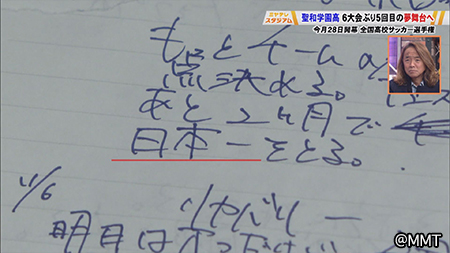 ミヤテレ
スタジアム
聖和学園高 6大会ぶり5回目の夢舞台へ
今月28日開幕 全国高校サッカー選手権
もっとチームの
点決める。
あと2ヶ月で
日本一をとる。
11/6
リヤバリー
明日は
@MMT